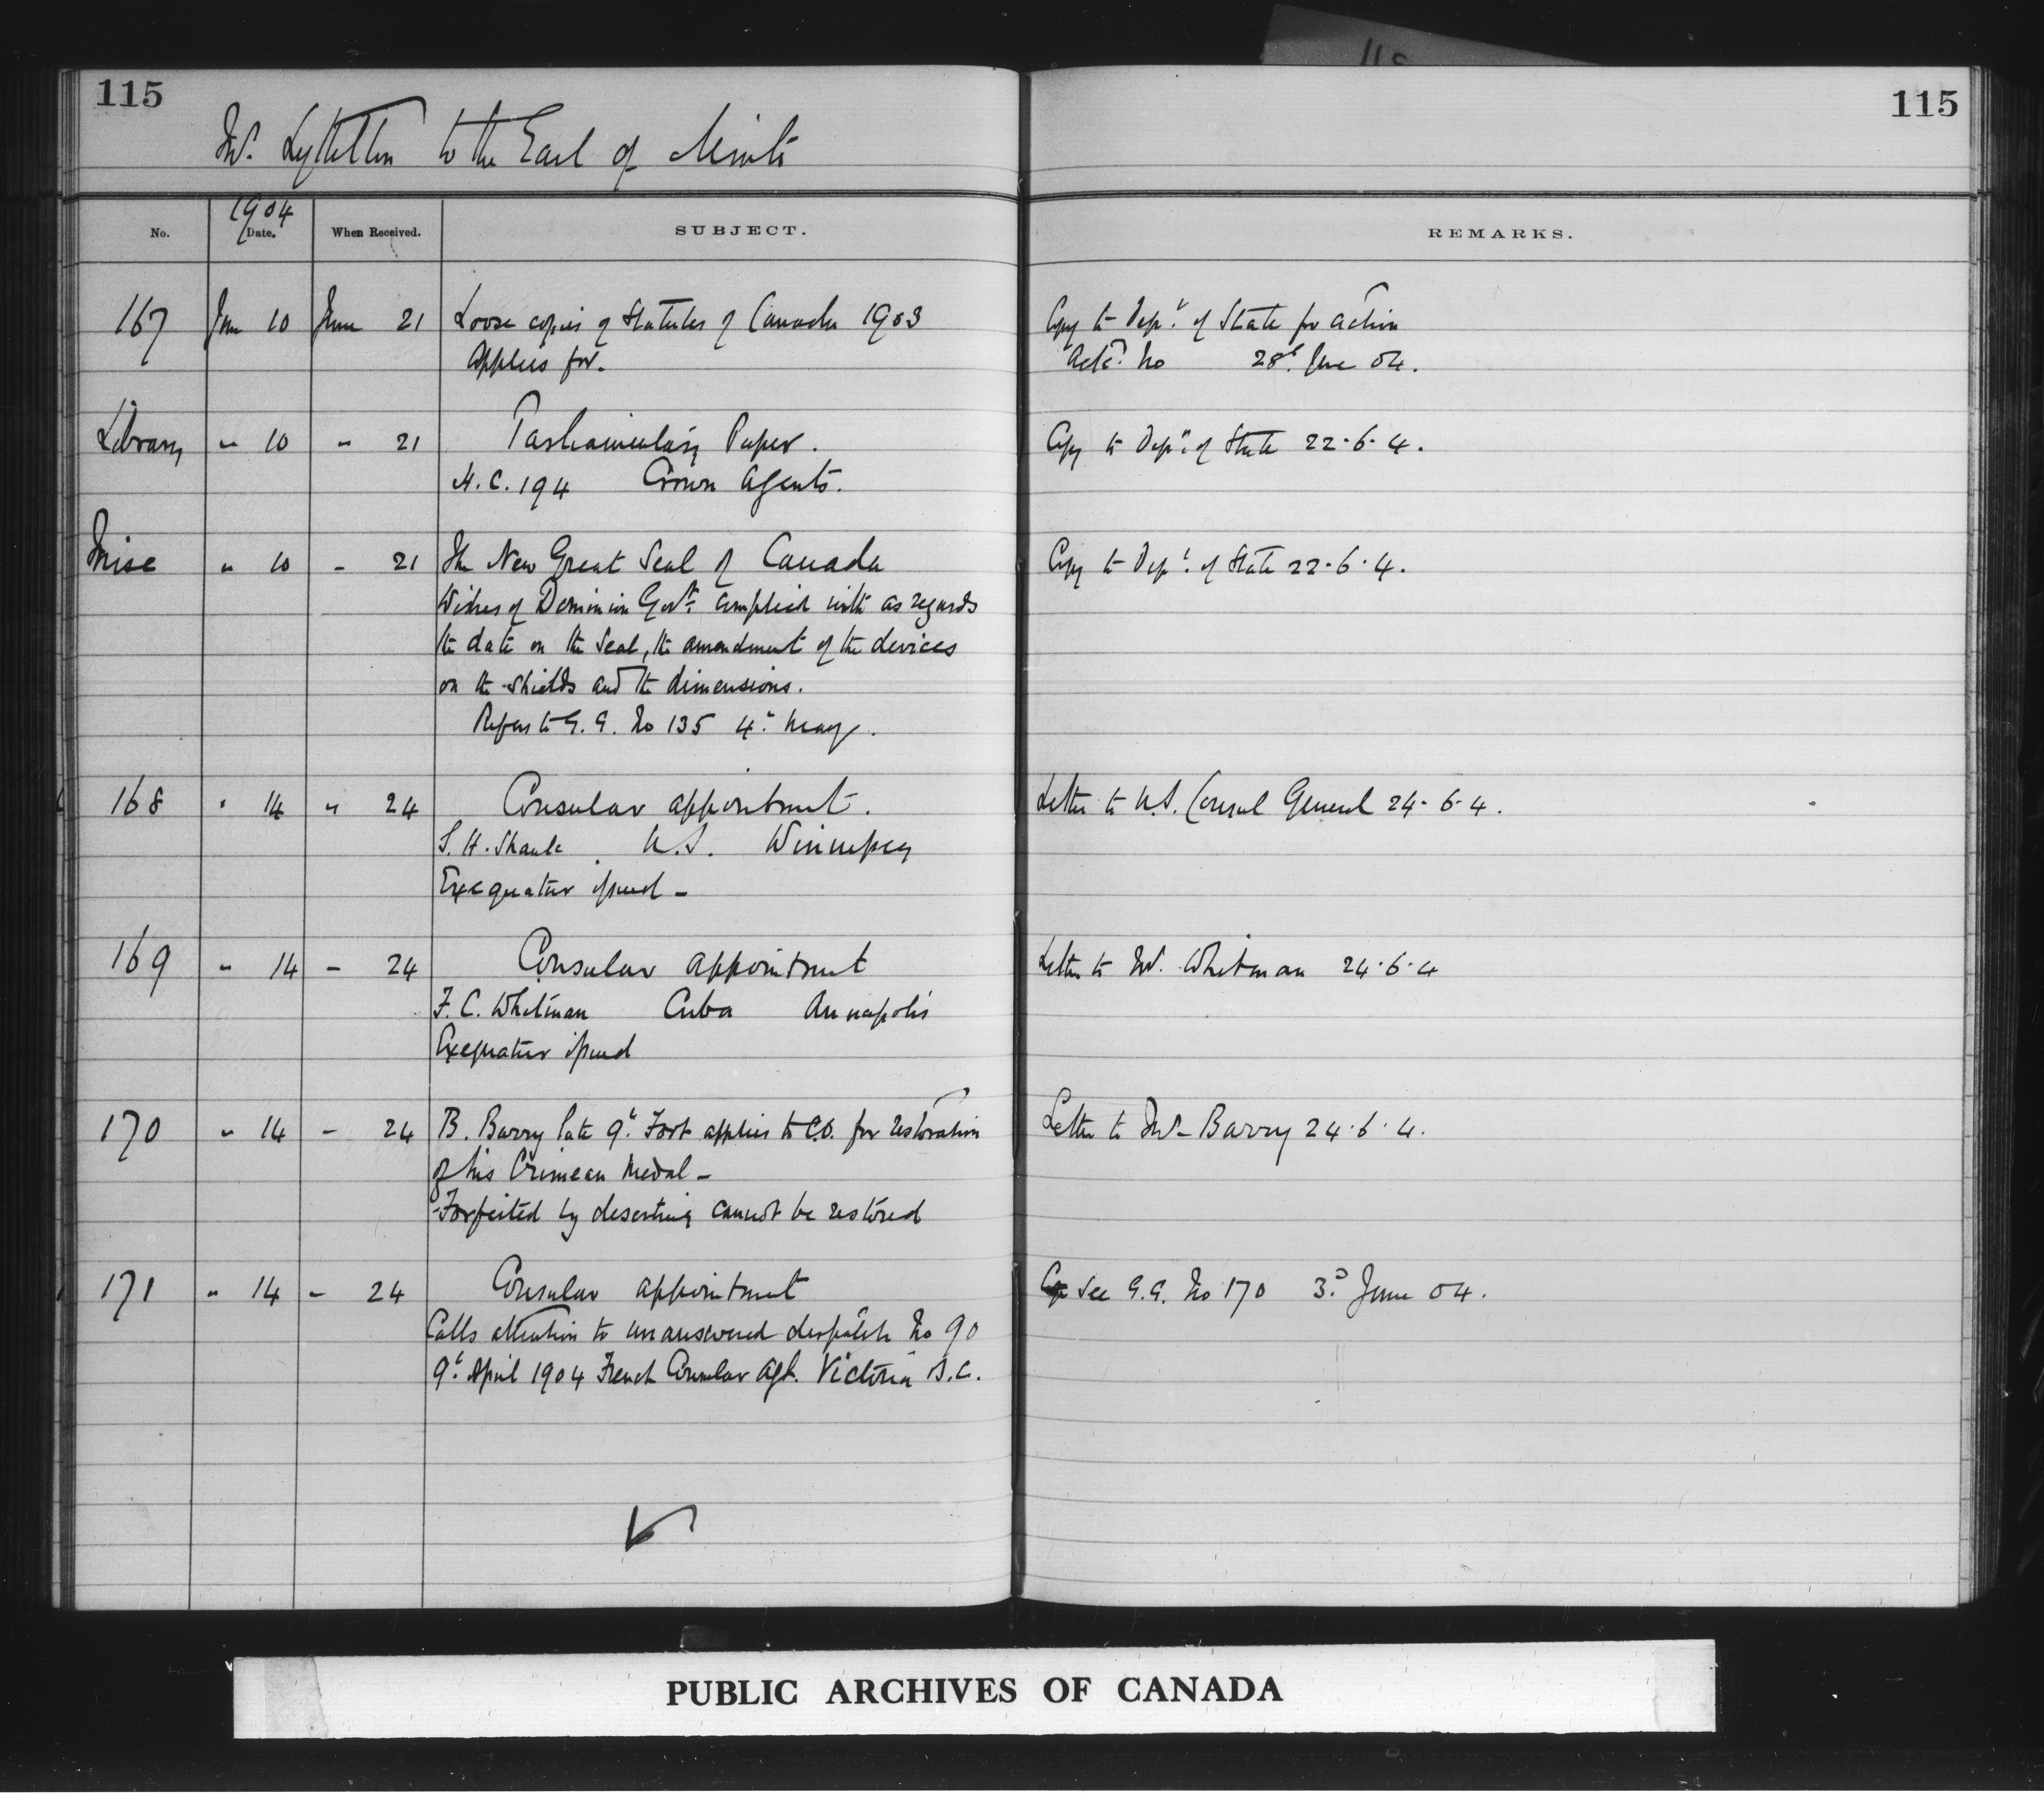 115
115
Mr. Lyttelton to the Earl of Minto
No.
1904
Date.
When Received.
SUBJECT.
REMARKS.
167 June 10 June 21 Loose copies of Statutes of Canada 1903
applies for.
Copy to Dept. of State for action
Ackd. No 28th June 04.
Library " 10 " 21 Parliamentary Paper.
H.C. 194 Crown Agents.
Copy to Dept. of State 22.6.4.
Misc " 10 " 21 The New Great Seal of Canada
Wishes of Dominion Govt. complied with as regards
the date on the Seal, the amendment of the devices
on the shields and the dimensions.
Refers to G.G. No 135 4th May.
Copy to Dept. of State 22.6.4.
168 " 14 " 24 Consular appointment.
S. H. Shank. U.S. Winnipeg
Exequatur issued -
Letter to U.S. Consul General 24.6.4.
169 " 14 - 24 Consular appointment
F. C. Whitman Cuba Annapolis
Exequatur issued
Letter to Mr. Whitman 24.6.4
170 " 14 - 24 B. Barry late 9th Foot applies to C.O. for restoration
of his Crimean Medal -
Forfeited by deserting cannot be restored
Letter to Mr Barry 24.6.4.
171 " 14 - 24 Consular appointment
Calls attention to unanswered despatch No 90
9th April 1904 French Consular Agt. Victoria B.C.
See G.G. No 170 3d June 04.
PUBLIC ARCHIVES OF CANADA